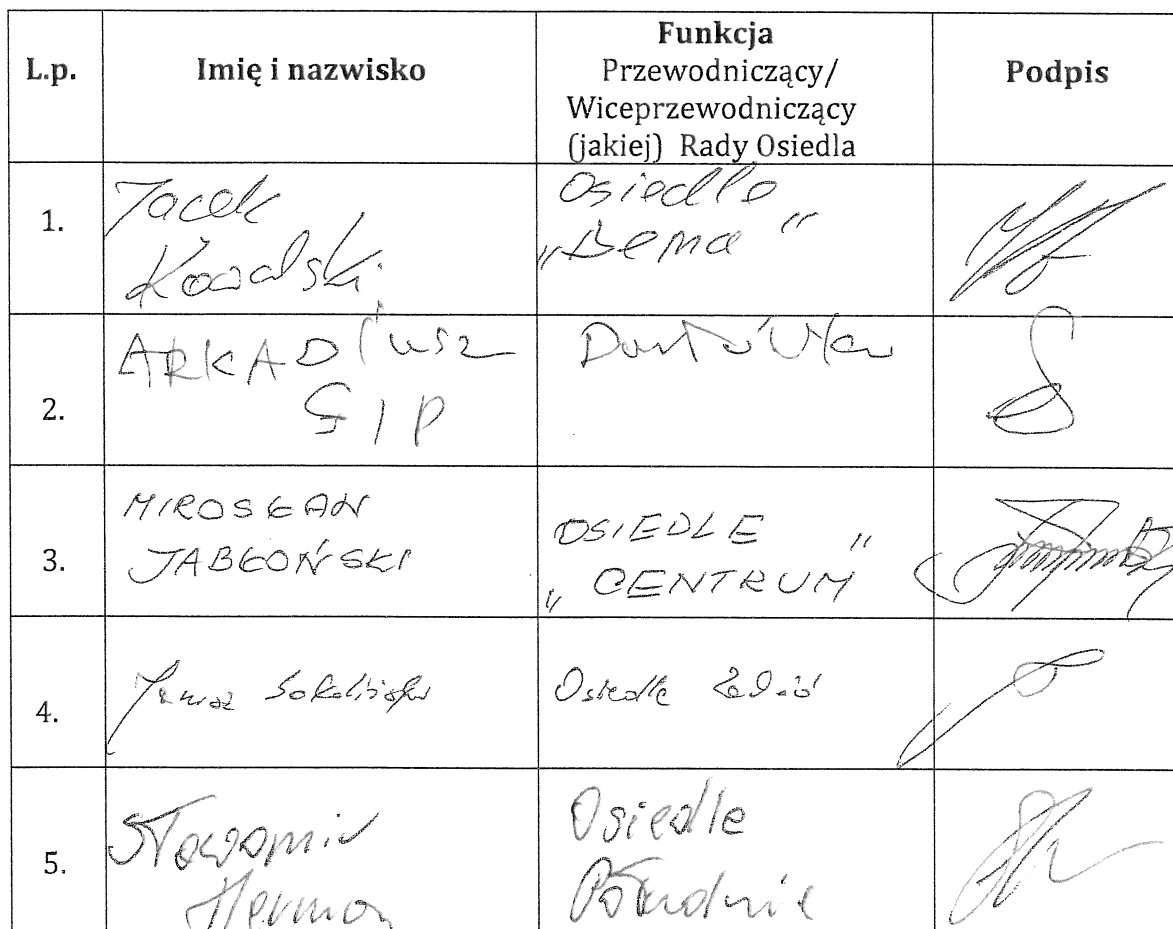 L.p.
Imię i nazwisko
Funkcja
Przewodniczący/
Wiceprzewodniczący
(jakiej) Rady Osiedla
Podpis
1.
Jacek
Kowalski
Osiedle
„Bema”
2.
ARKADiusz
GIP
3.
MIROSŁAW
JABŁOŃSKI
OSIEDLE
„CENTRUM”
4.
Janusz
Osiedle
5.
Sławomir
Herman
Osiedle
Południe